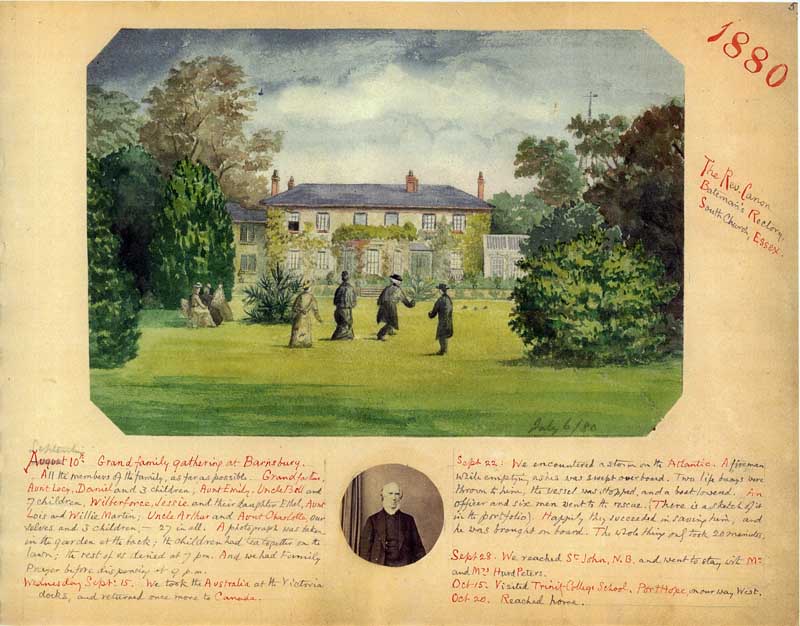 5
1880
The Rev. Canon
Bateman's Rectory,
South Church, Essex.
July 6/80
September
August 10th Grand family gathering at Barnsbury.
All the members of the family, as far as possible. Grandfather,
Aunt Lucy, Daniel and 3 children, Aunt Emily, Uncle Bell and
7 children, Wilberforce, Jessie, and their daughter Ethel, Aunt
Lois and Willie Martin; Uncle Arthur and Aunt Charlotte, our
selves, and 3 children — 27 in all. A photograph was taken
in the garden at the back; the children had tea together on the
lawn; the rest of us dined at 7 pm. And we had Family
Prayer before dispersing at 9 p.m.
Wednesday Sept: 15. We took the Australia at the Victoria
docks, and returned once more to Canada.
Sept 22: We encountered a storm on the Atlantic. A fireman
while emptying ashes was swept overboard. Two life buoys were
thrown to him, the vessel was stopped, and a boat lowered. An
officer and six men went to the rescue. (There is a sketch of it
in the portfolio). Happily they succeeded in saving him, and
he was brought on board. The whole thing only took 20 minutes.
Sept 28. We reached St John, N.B. and went to stay with Mr.
and Mrs Hurd Peters.
Oct 15. Visited Trinity College School, Port Hope, on our way West.
Oct. 20. Reached home.